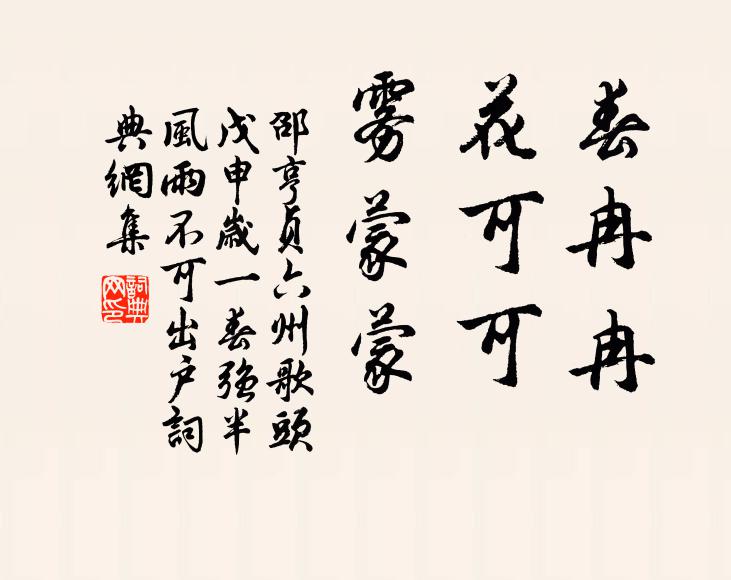 春冉冉
花可可
雾蒙蒙
邵亨貞六州歌頭
戊申歲一春強半
風雨不可出户詞
典網集
詞典
网印